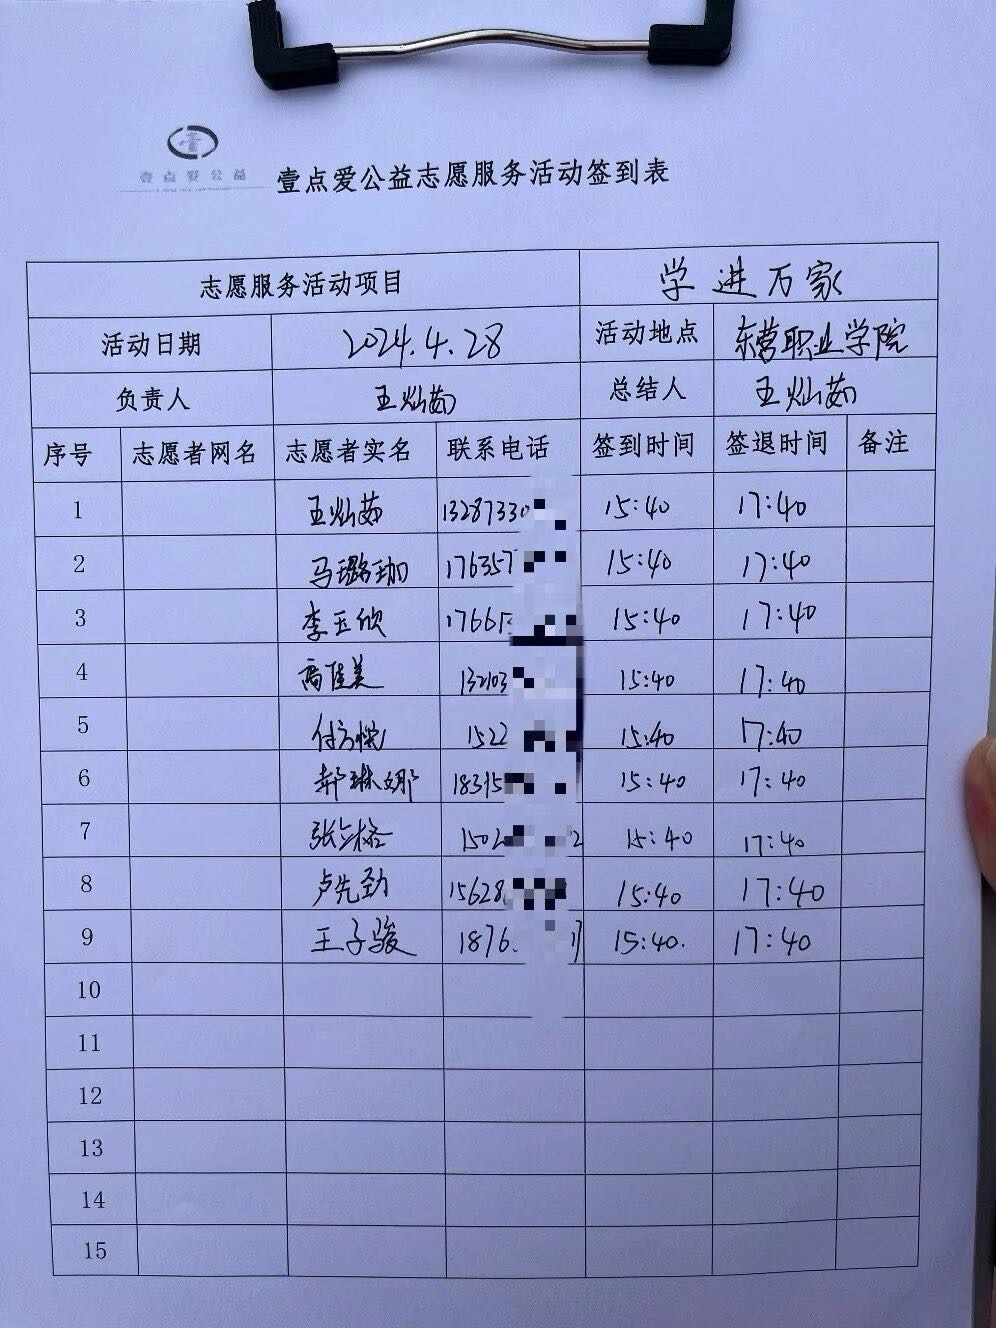 壹点爱公益
壹点爱公益志愿服务活动签到表
志愿服务活动项目 学进万家
活动日期 2024.4.28 活动地点 东营职业学院
负责人 王灿茹 总结人 王灿茹
序号 志愿者网名 志愿者实名 联系电话 签到时间 签退时间 备注
1 王灿茹 1328733 15:40 17:40
2 马璐珈 176357 15:40 17:40
3 李玉欣 1766 15:40 17:40
4 高佳美 132103 15:40 17:40
5 1522 15:40 17:40
6 郝琳娜 18315 15:40 17:40
7 1502 15:40 17:40
8 卢先劲 15628 15:40 17:40
9 王子骏 1876 15:40. 17:40
10
11
12
13
14
15